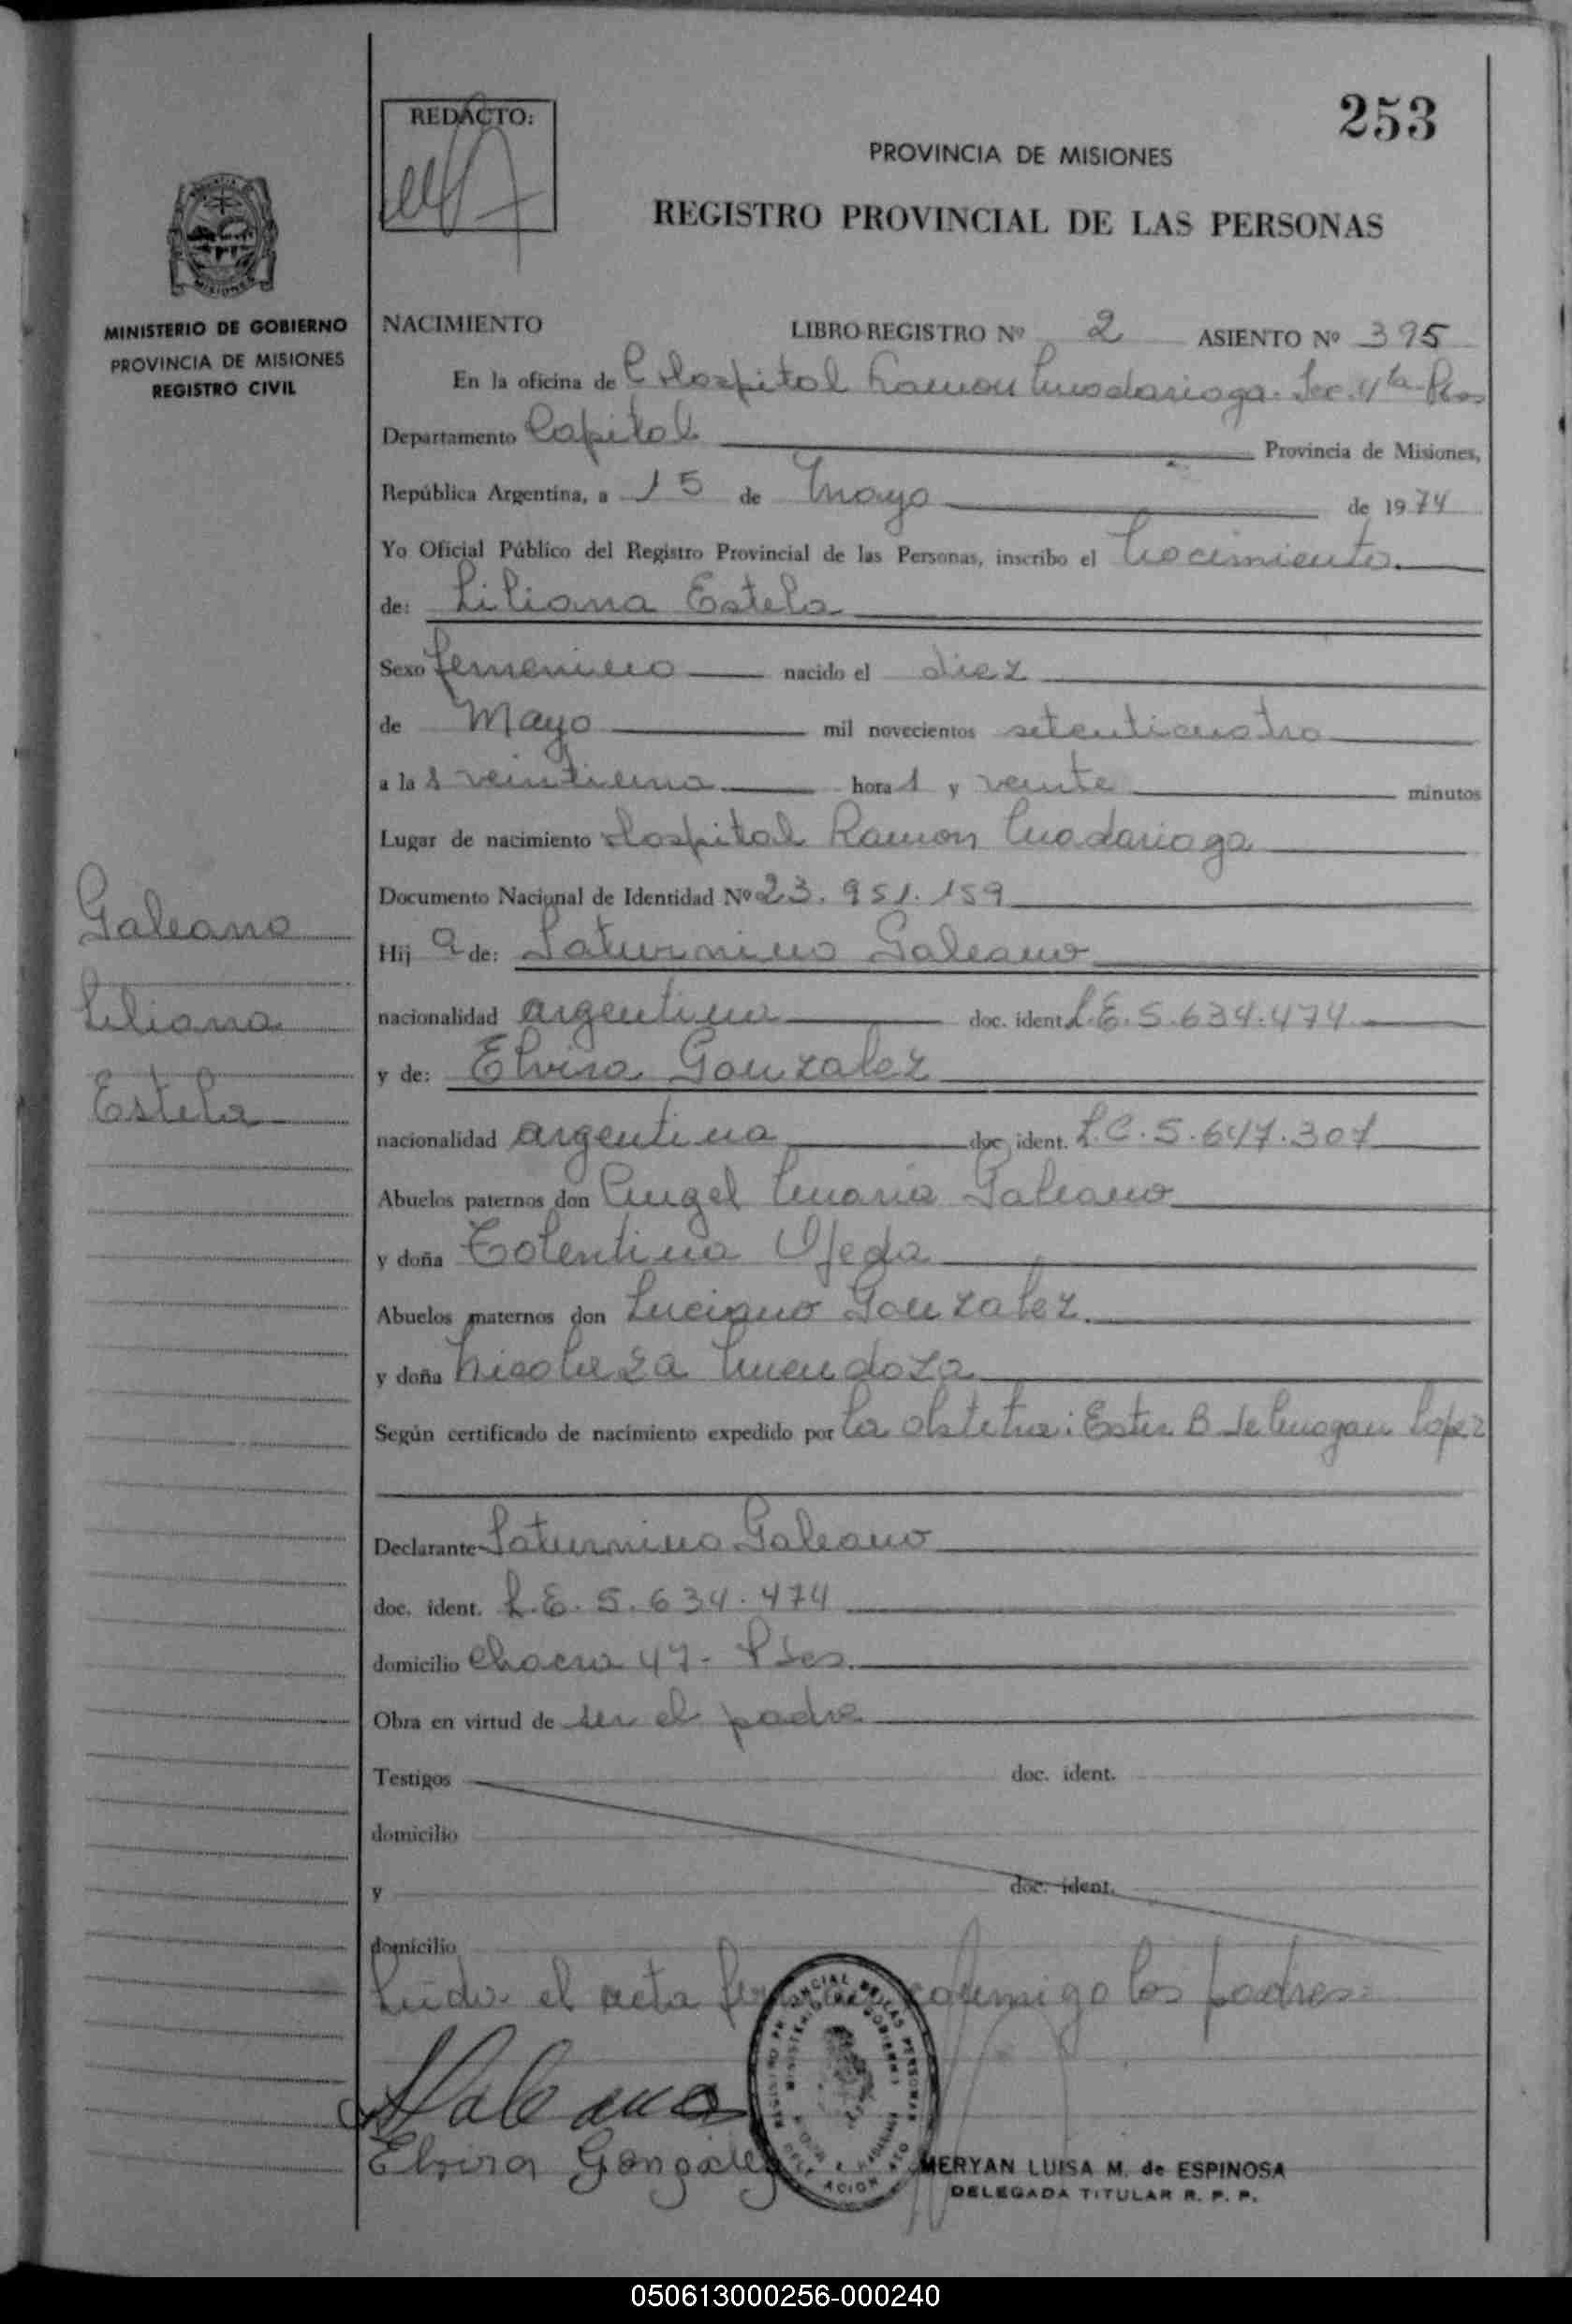 253
REDACTO:
PROVINCIA DE MISIONES
REGISTRO PROVINCIAL DE LAS PERSONAS
MINISTERIO DE GOBIERNO
PROVINCIA DE MISIONES
REGISTRO CIVIL
NACIMIENTO LIBRO REGISTRO Nº 2 ASIENTO Nº 395
En la oficina de Hospital Ramon Madariaga. Sec. 4ta
Departamento Capital Provincia de Misiones,
República Argentina, a 15 de Mayo de 1974
Yo Oficial Público del Registro Provincial de las Personas, inscribo el Nacimiento
de: Liliana Estela
Sexo femenino nacido el diez
de Mayo mil novecientos setenticuatro
a las veintiuna horas y veinte minutos
Lugar de nacimiento Hospital Ramon Madariaga
Documento Nacional de Identidad Nº 23.951.159
Galeano
Liliana
Estela
Hija de: Saturnino Galeano
nacionalidad argentina doc. ident. L.E. 5.634.474
y de: Elvira Gonzalez
nacionalidad argentina doc. ident. L.C. 5.647.307
Abuelos paternos don Angel Maria Galeano
y doña Tolentina Ojeda
Abuelos maternos don Luciano Gonzalez
y doña Nicolaza Mendoza
Según certificado de nacimiento expedido por la obstetra: Ester B de Lopez
Declarante Saturnino Galeano
doc. ident. L.E. 5.634.474
domicilio Chacra 47- Pdas.
Obra en virtud de ser el padre
Testigos doc. ident.
domicilio
y doc. ident.
domicilio
Leida el acta conmigo los padres
Galeano
Elvira Gonzalez
MERYAN LUISA M. de ESPINOSA
DELEGADA TITULAR R. P. P.
050613000256-000240